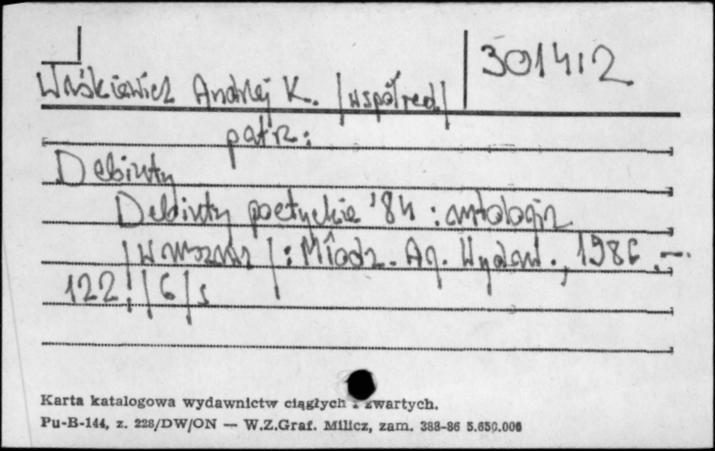 301412
Waśkiewicz Andrzej K. /współred/
patrz:
Debiuty
Debiuty poetyckie '84 : antologia
/Warszawa/ : Młodz. Ag. Wydaw., 1986 .-
122, /6/ s
Karta katalogowa wydawnictw ciągłych i zwartych.
Pu-B-144, z. 228/DW/ON — W.Z.Graf. Milicz, zam. 388-86 5.650.000